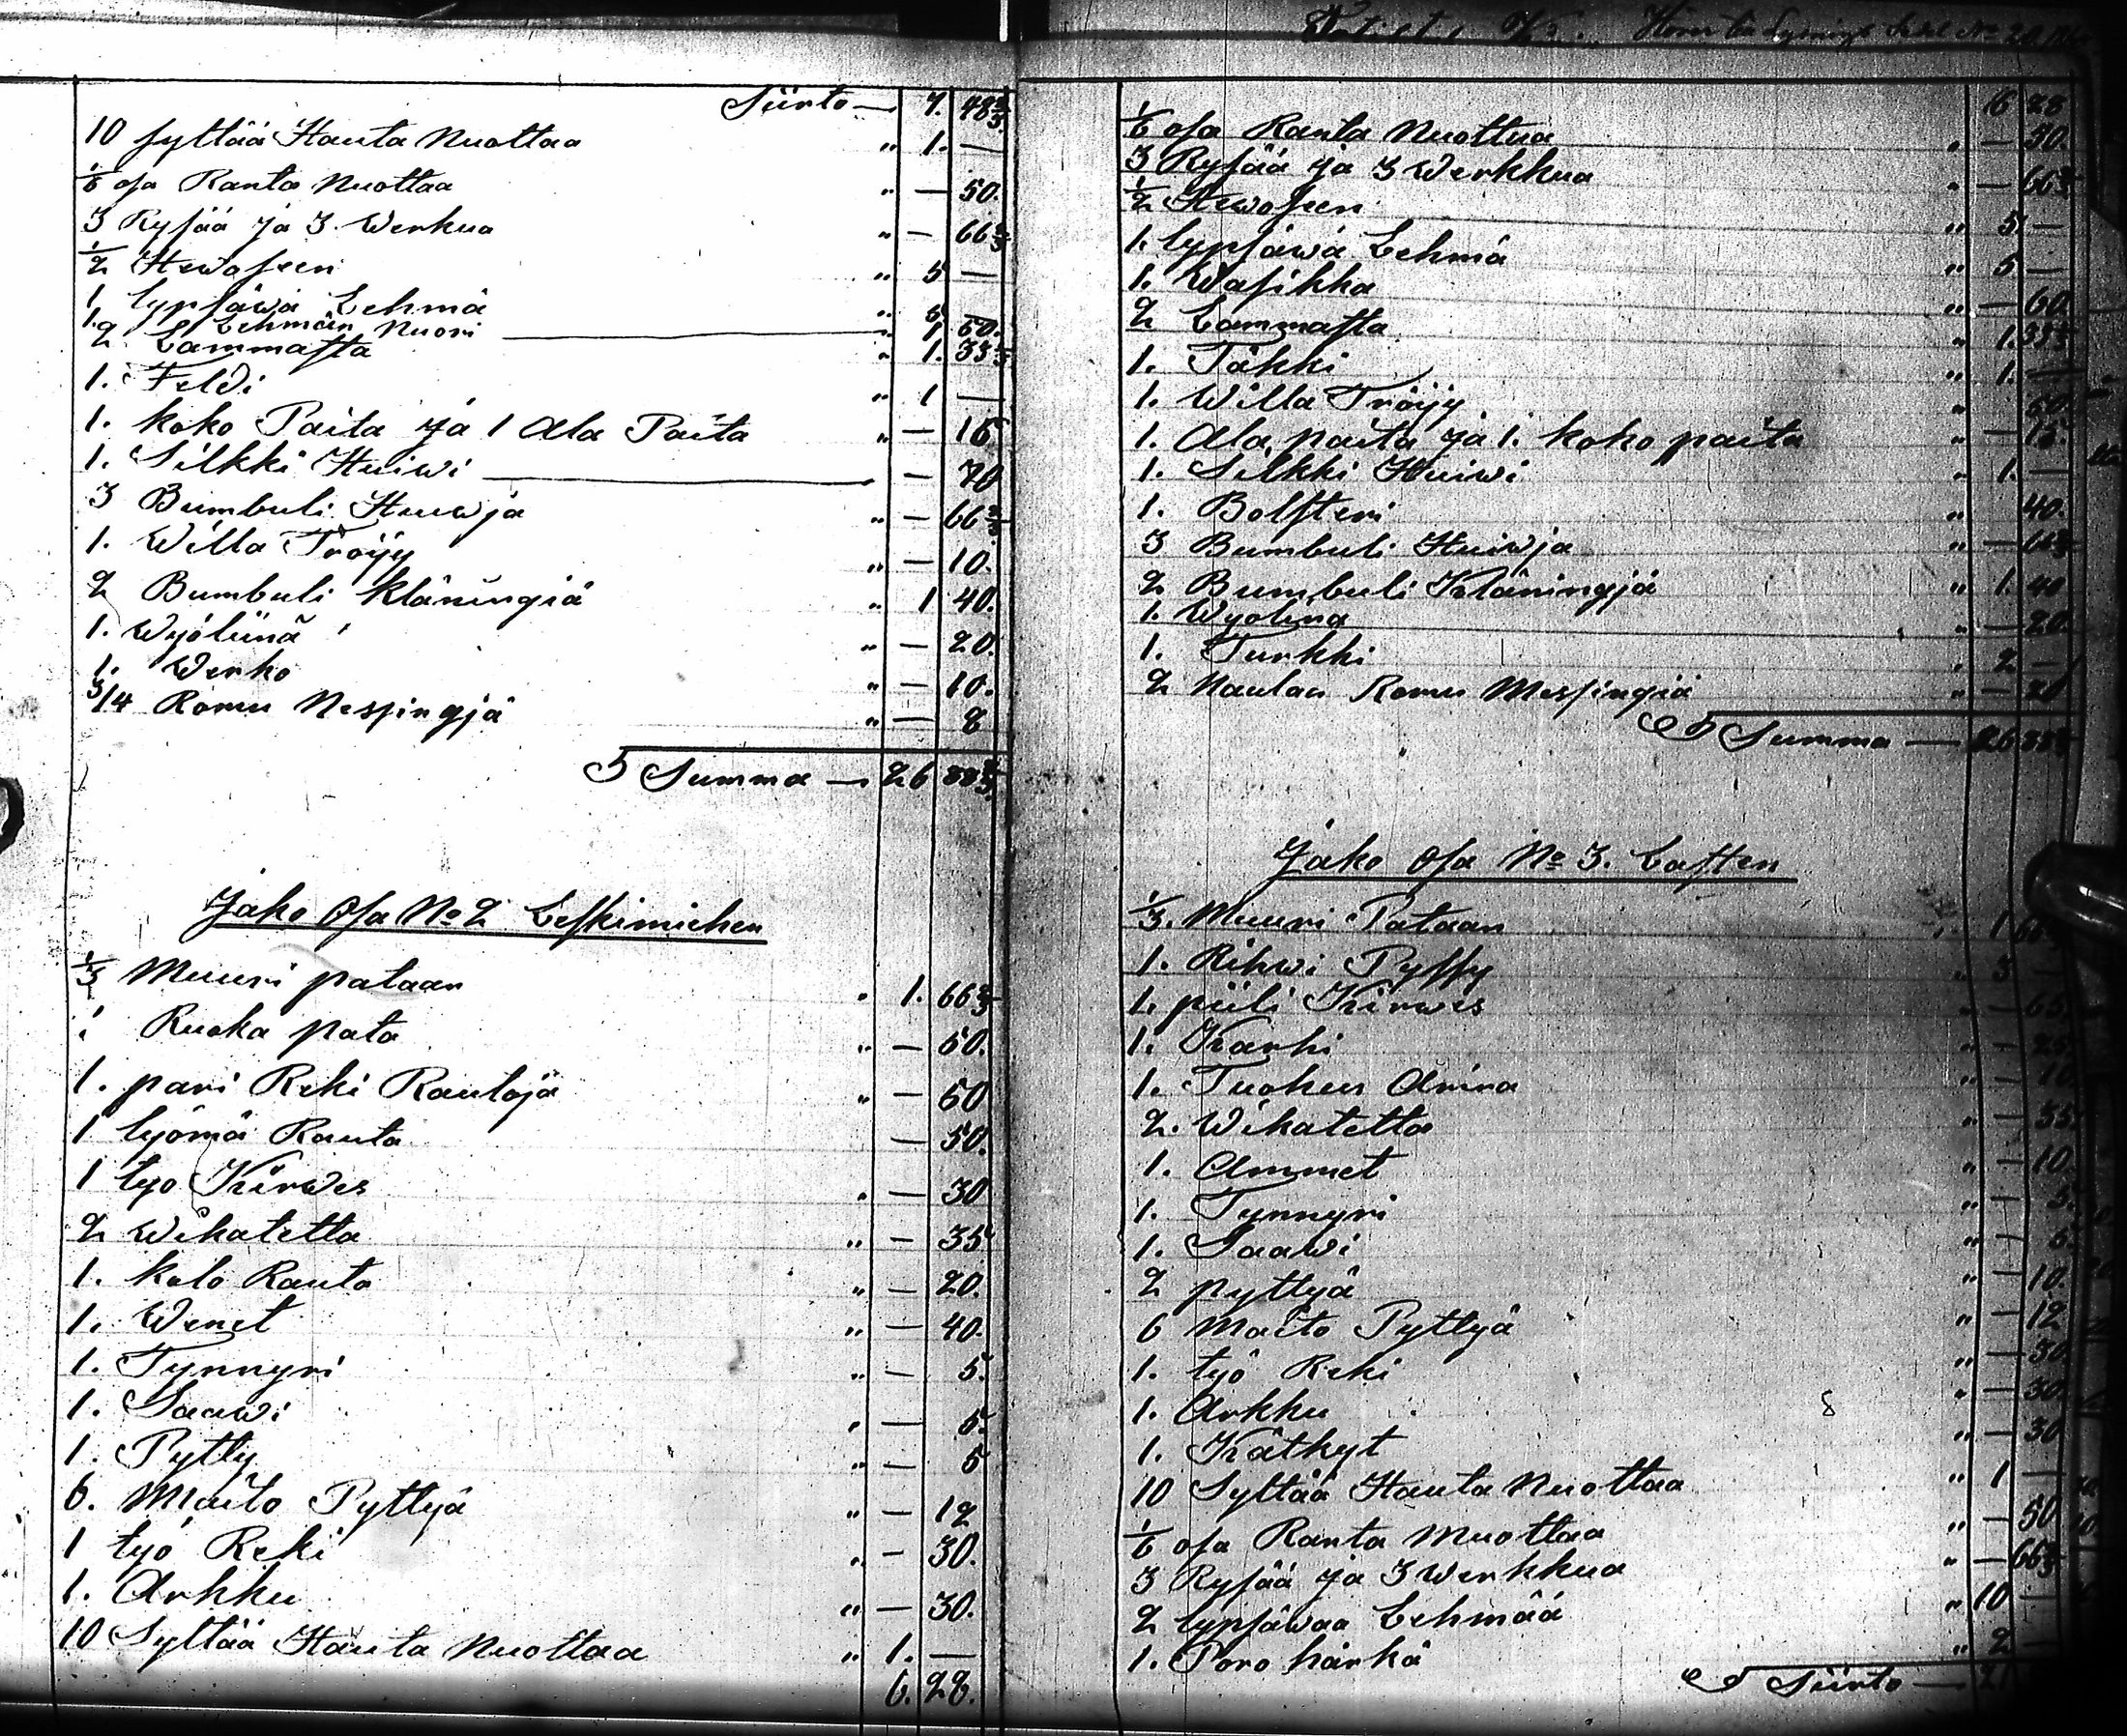 Siirto — 7. 48 2/3.
10 Syltää Hauta Nuottaa " 1. —
1/6 osa Ranta Nuottaa " — 50.
3 Rysää ja 3. Werkua " — 66 2/3
1/2 Hewosen " 5 —
1. lypsäwä Lehmä " 5. —
1. Lehmän Nuori — " 1 50.
2 Lammasta " 1. 33 1/3
1. Feldi " 1 —
1. koko Paita ja 1 Ala Paita " — 15
1. Silkki Huiwi — " — 70
3 Bumbuli Huiwja " — 66 2/3
1. Willa Tröijy " — 10.
2 Bumbuli kläningiä " 1 40.
1. Wyöliinä " — 20.
1. Werko " — 10.
3/4 Romu Messingjä " — 8
S Summa — 26 88 2/3.
Jako Osa No 2 Leskimiehen
1/3 Muuri pataan " 1. 66 2/3
1 Ruoka pata " — 50.
1. pari Reki Rautoja " — 50
1 lyömä Rauta — 50.
1 työ Kirwes " — 30
2 Wikatetta " — 35
1. kolo Rauta " — 20.
1. Wenet " — 40.
1. Tynnyri " — 5.
1. Saawi " — 5.
1. Pytty " — 5
6. Maito Pyttyä " — 12
1 työ Reki " — 30.
1. Arkku " — 30.
10 Syltää Hauta Nuottaa " 1. —
6. 28.
6 28
1/6 osa Ranta Nuottaa " — 50.
3 Rysää ja 3 Werkkua " — 66 2/3
1/2 Hewosen " 5 —
1. lypsäwä Lehmä " 5 —
1. Wasikka " — 60.
2 Lammasta " 1. 33 1/3
1. Täkki " 1. —
1. Willa Tröijy " 50.
1. Ala paita ja 1. koko paita " — 15.
1. Silkki Huiwi " 1. —
1. Bolsteri " 40.
3 Bumbuli Huiwja " — 66 2/3
2 Bumbuli Kläningjä " 1. 40
1. Wyölina " — 20.
1. Turkki " 2 —
2 Naulaa Romu Messingiä " — 20
S Summa — 26
Jako Osa No 3. Lasten
1/3. Muuri Pataan " 1 66 2/3
1. Rihwi Pyssy " 3 —
1. piili Kirwes " — 65.
1. Karhi " — 25
1. Tuohen " — 10.
2. Wikatetta " — 35.
1. Ammet " — 10.
1. Tynnyri " — 5.
1. Saawi " — 5.
2 pyttyä " — 10.
6 Maito Pyttyä " — 12
1. työ Reki " — 30.
1. Arkku " — 30.
1. Kätkyt " — 30
10 Syltää Hauta Nuottaa " 1 —
1/6 osa Ranta Nuottaa " — 50
3 Rysää ja 3 Werkkua " — 66 2/3
2 lypsäwää Lehmää " 10 —
1. Poro härkä " 2 —
S Siirto —